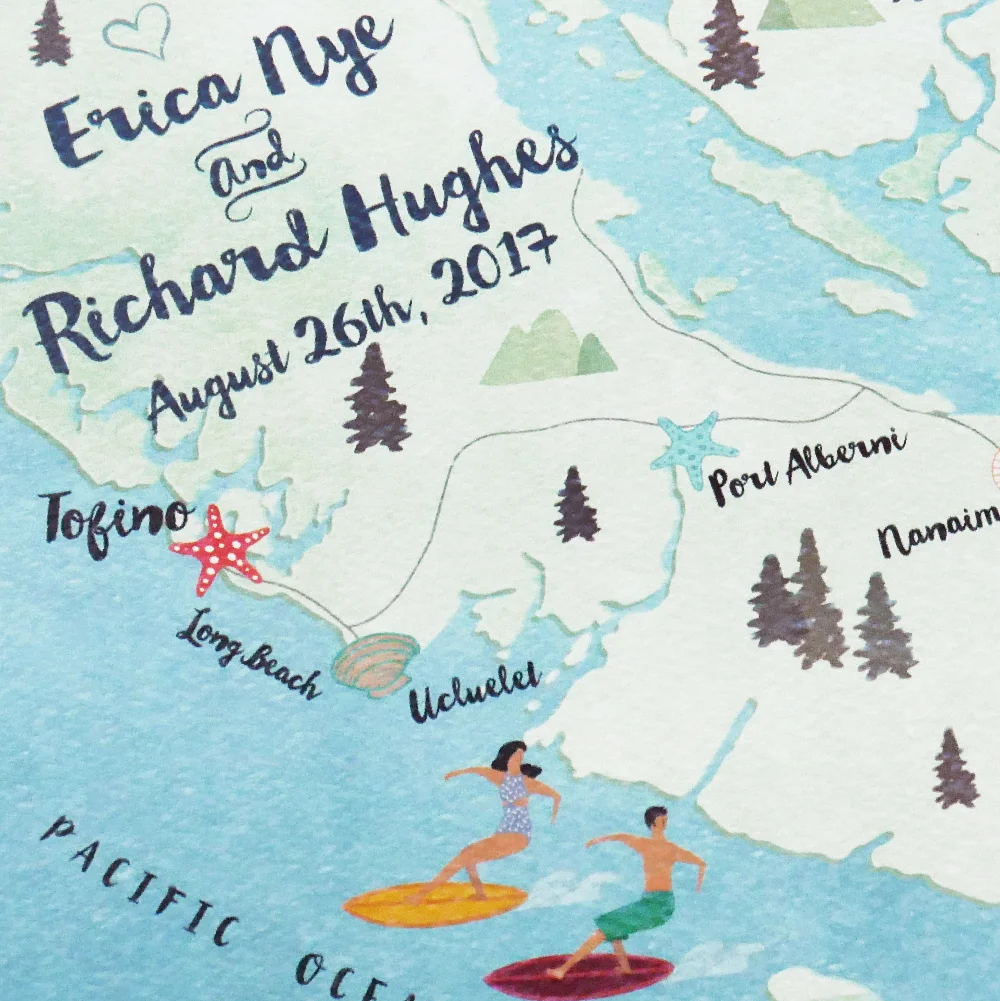 Erica Nye
and
Richard Hughes
August 26th, 2017
Port Alberni
Tofino
Long Beach
Ucluelet
PACIFIC